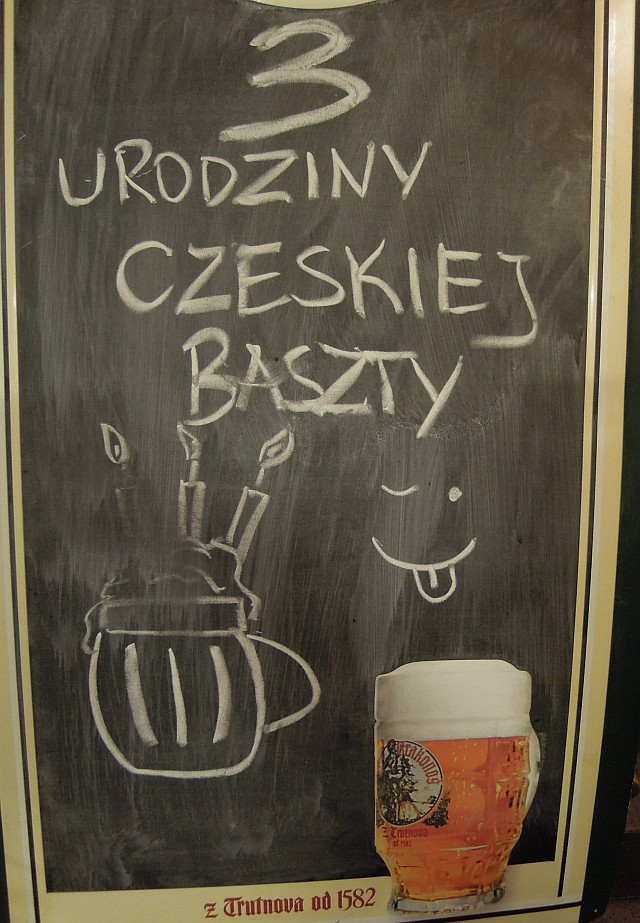 3
URODZINY
CZESKIEJ
BASZTY
Krakonoš
z Trutnova
od 1582
z Trutnova od 1582